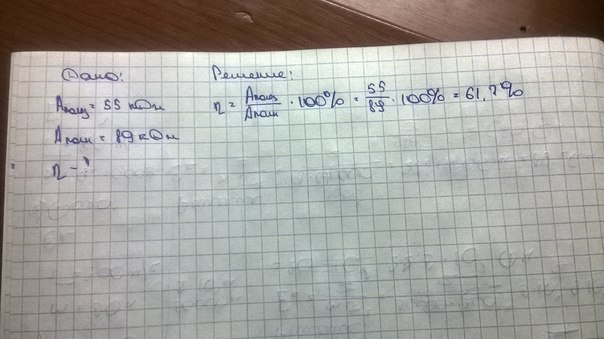 Дано:
Aполз = 55 кДж
Aполн = 89 кДж
η - ?
Решение:
η = Aполз / Aполн · 100% = 55 / 89 · 100% = 61,7%